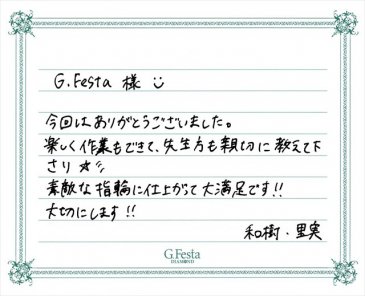 G.Festa 様
今回はありがとうございました。
楽しく作業もできて、先生方も親切に教えて下
さり
素敵な指輪に仕上がって大満足です!!
大切にします!!
和樹・里実
G.Festa
DIAMOND